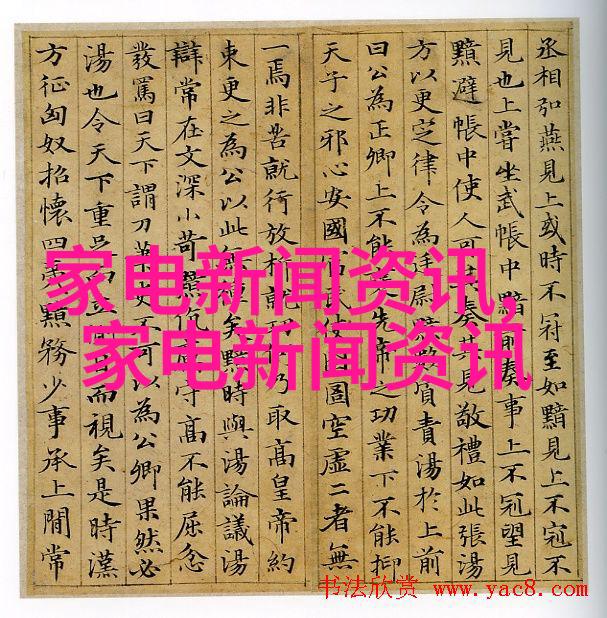 丞相弘燕見上或時不冠至如黯見上不冠不
見也上嘗坐武帳中黯前奏事上不冠望見
黯避帳中使人可其奏其見敬禮如此張湯
方以更定律令為廷尉黯數質責湯於上前
曰公為正卿上不能先帝之功業下不能抑
天子之邪心安國富民使囹圄空虛二者無
一焉非苦就行放析就乃取高皇帝約
束更之為公以此無種矣黯時與湯論議湯
辯常在文深小苛黯伉守高不能屈忿
發罵曰天下謂刀筆吏不可以為公卿果然必
湯也令天下重足而視矣是時漢
方征匈奴招懷四夷黯務少事承上間常
家电新闻资讯,
家电新闻资讯
书法欣赏 www.yac8.com